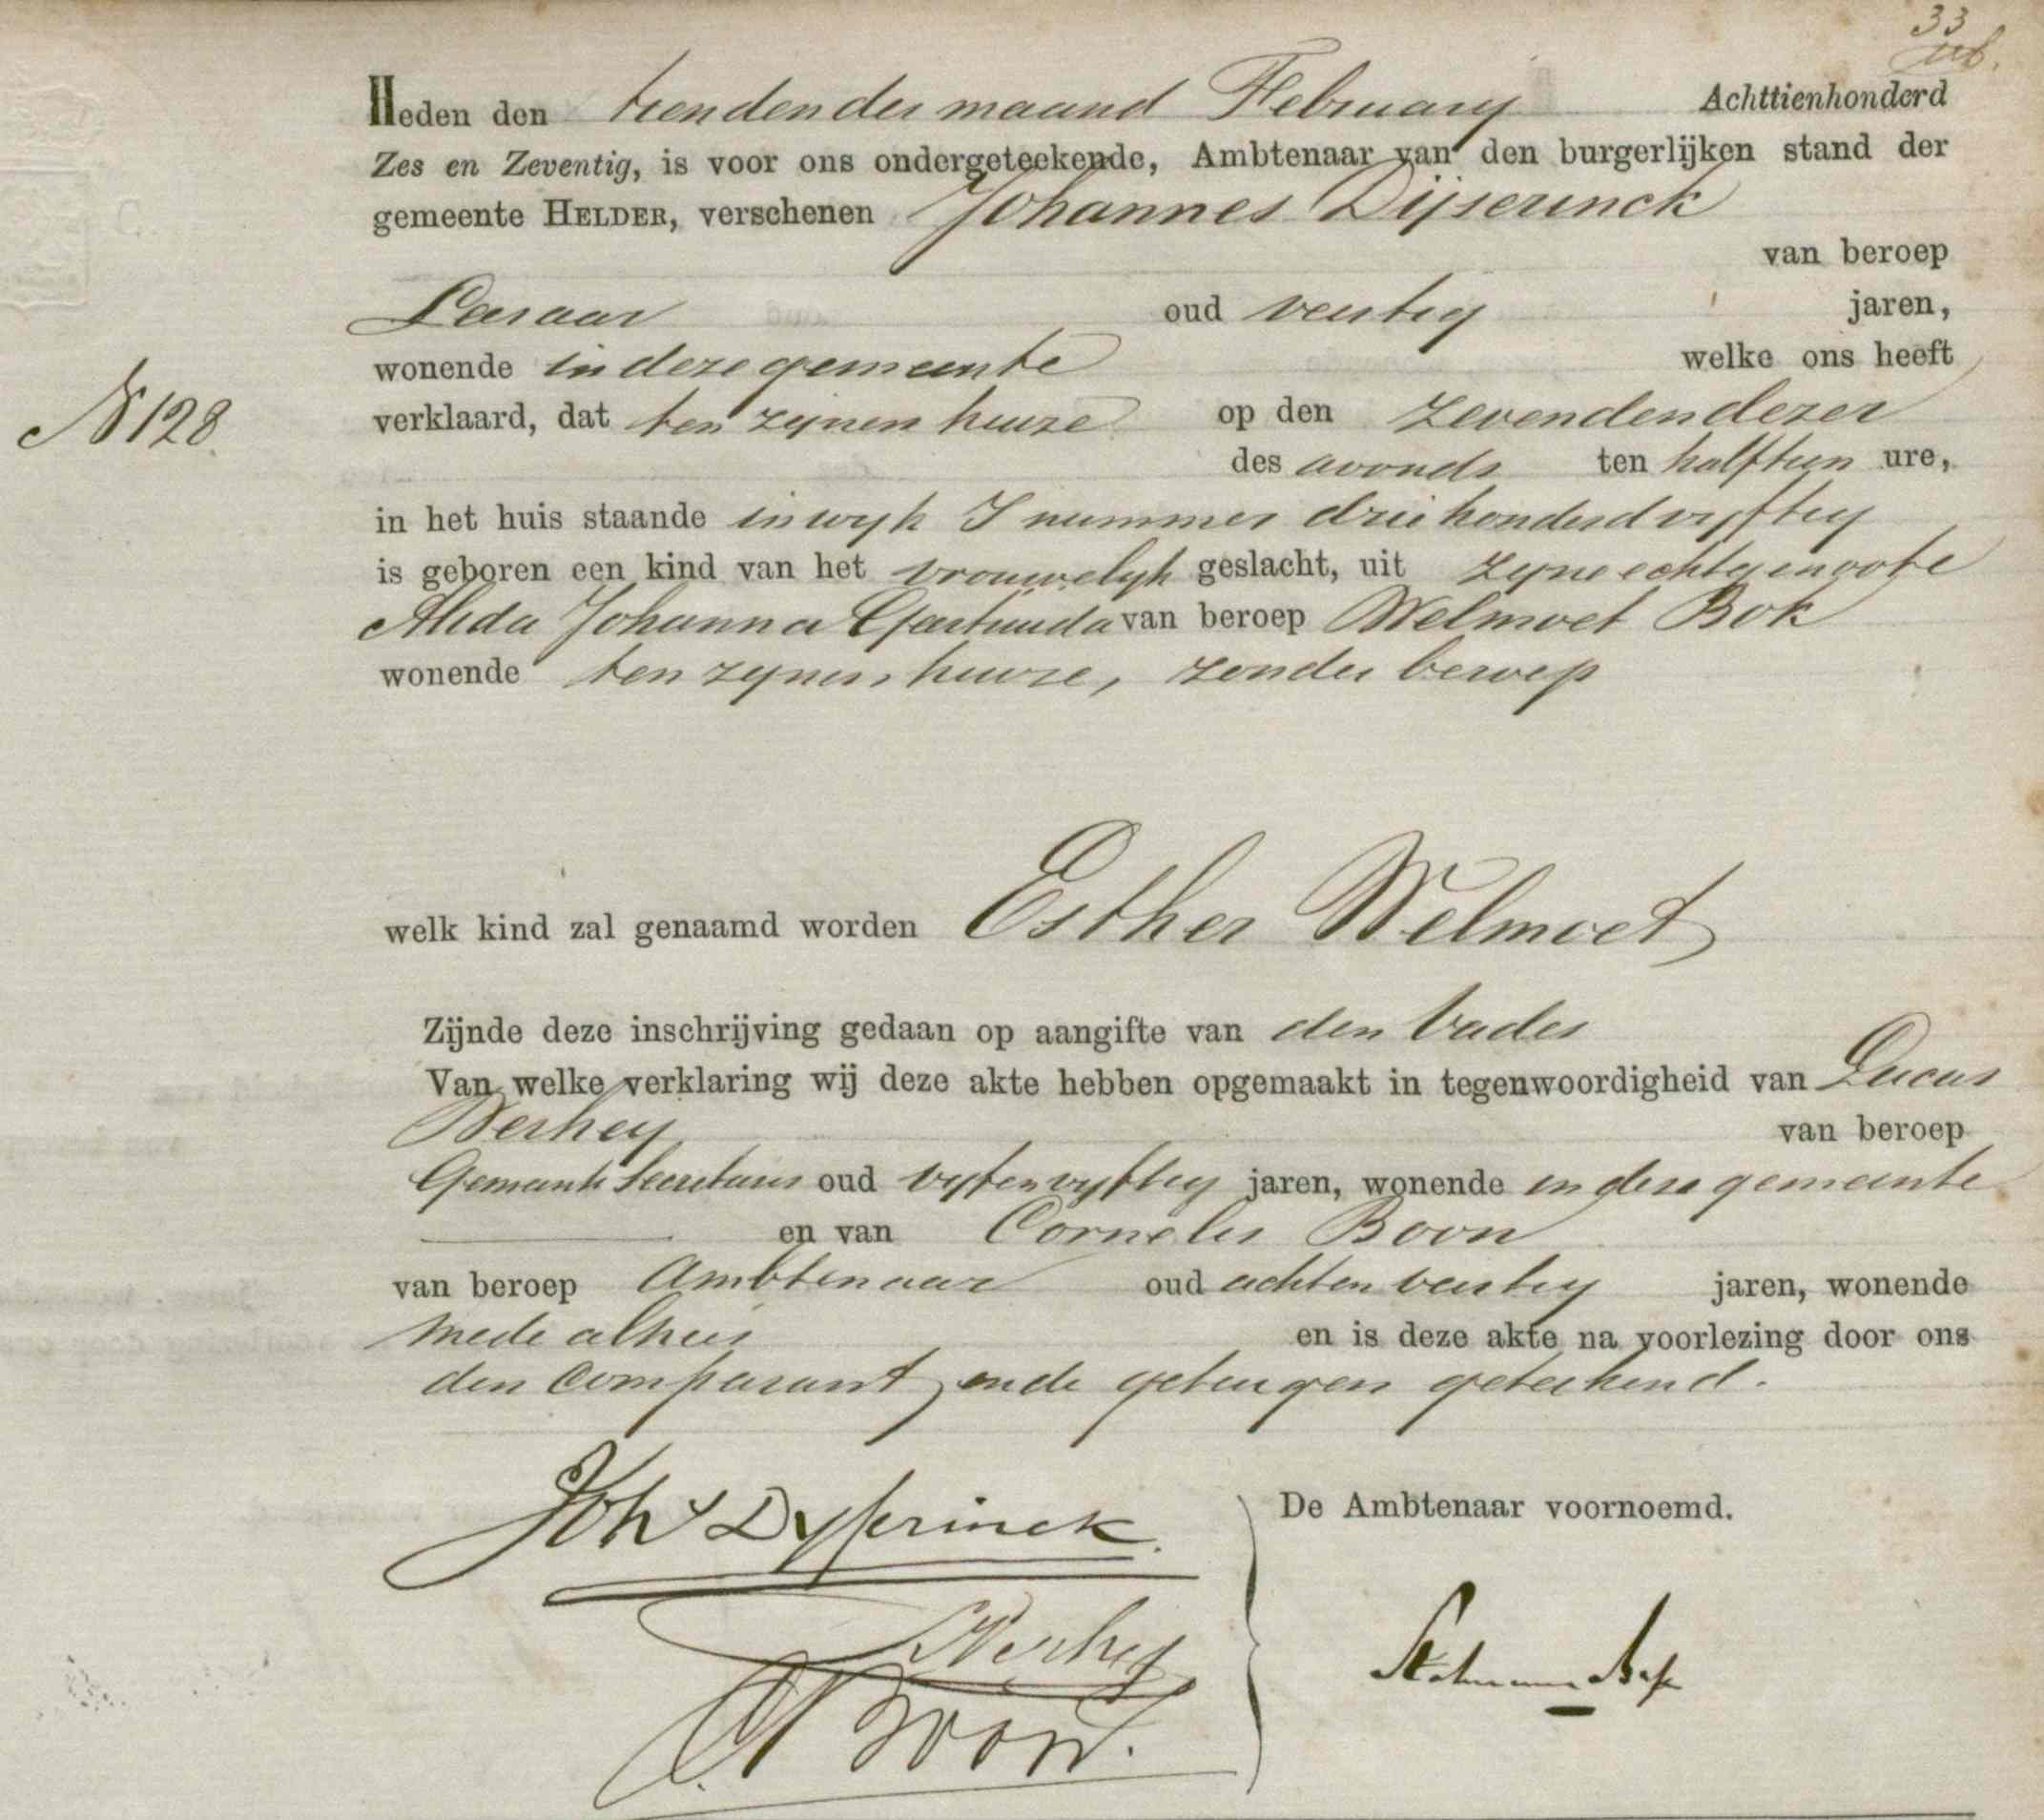 33
Heden den tienden der maand February Achttienhonderd
Zes en Zeventig, is voor ons ondergeteekende, Ambtenaar van den burgerlijken stand der
gemeente HELDER, verschenen Johannes Dijserinck
van beroep
Leeraar oud veertig jaren,
wonende in deze gemeente welke ons heeft
N 128
verklaard, dat ten zijnen huize op den zevenden dezer
des avonds ten half tien ure,
in het huis staande in wyk I nummer driehonderd vyftig
is geboren een kind van het vrouwelyk geslacht, uit zyne echtgenoote
Alida Johanna Geertruida van beroep Welmoet Bok
wonende ten zynen huize, zonder beroep
welk kind zal genaamd worden Esther Welmoet
Zijnde deze inschrijving gedaan op aangifte van den Vader
Van welke verklaring wij deze akte hebben opgemaakt in tegenwoordigheid van Lucas
Verhey van beroep
Gemeente Secretaris oud vyfenvyftig jaren, wonende in deze gemeente
en van Cornelis Boon
van beroep Ambtenaar oud achtenveertig jaren, wonende
mede alhier en is deze akte na voorlezing door ons
den Comparant en de getuigen geteekend.
Joh Dyserinck.
De Ambtenaar voornoemd.
LVerhey
C Boon.